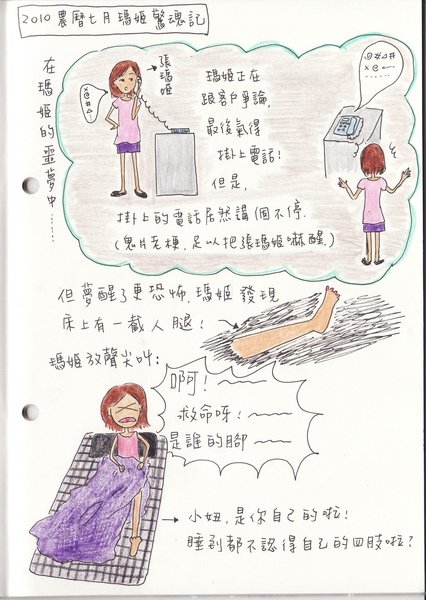 2010 農曆七月瑪姬驚魂記
在瑪姬的靈夢中……
張瑪姬
×
@
#
△…
瑪姬正在
跟客戶爭論,
最後氣得
掛上電話!
但是,
@@△#
×@←
……
掛上的電話居然講個不停.
(鬼片老梗,足以把張瑪姬嚇醒.)
但夢醒了更恐怖,瑪姬發現
床上有一截人腿!
瑪姬放聲尖叫:
啊!~~~
救命呀!~~~
是誰的腳~~~
小妞,是你自己的啦!
睡到都不認得自己的四肢啦?